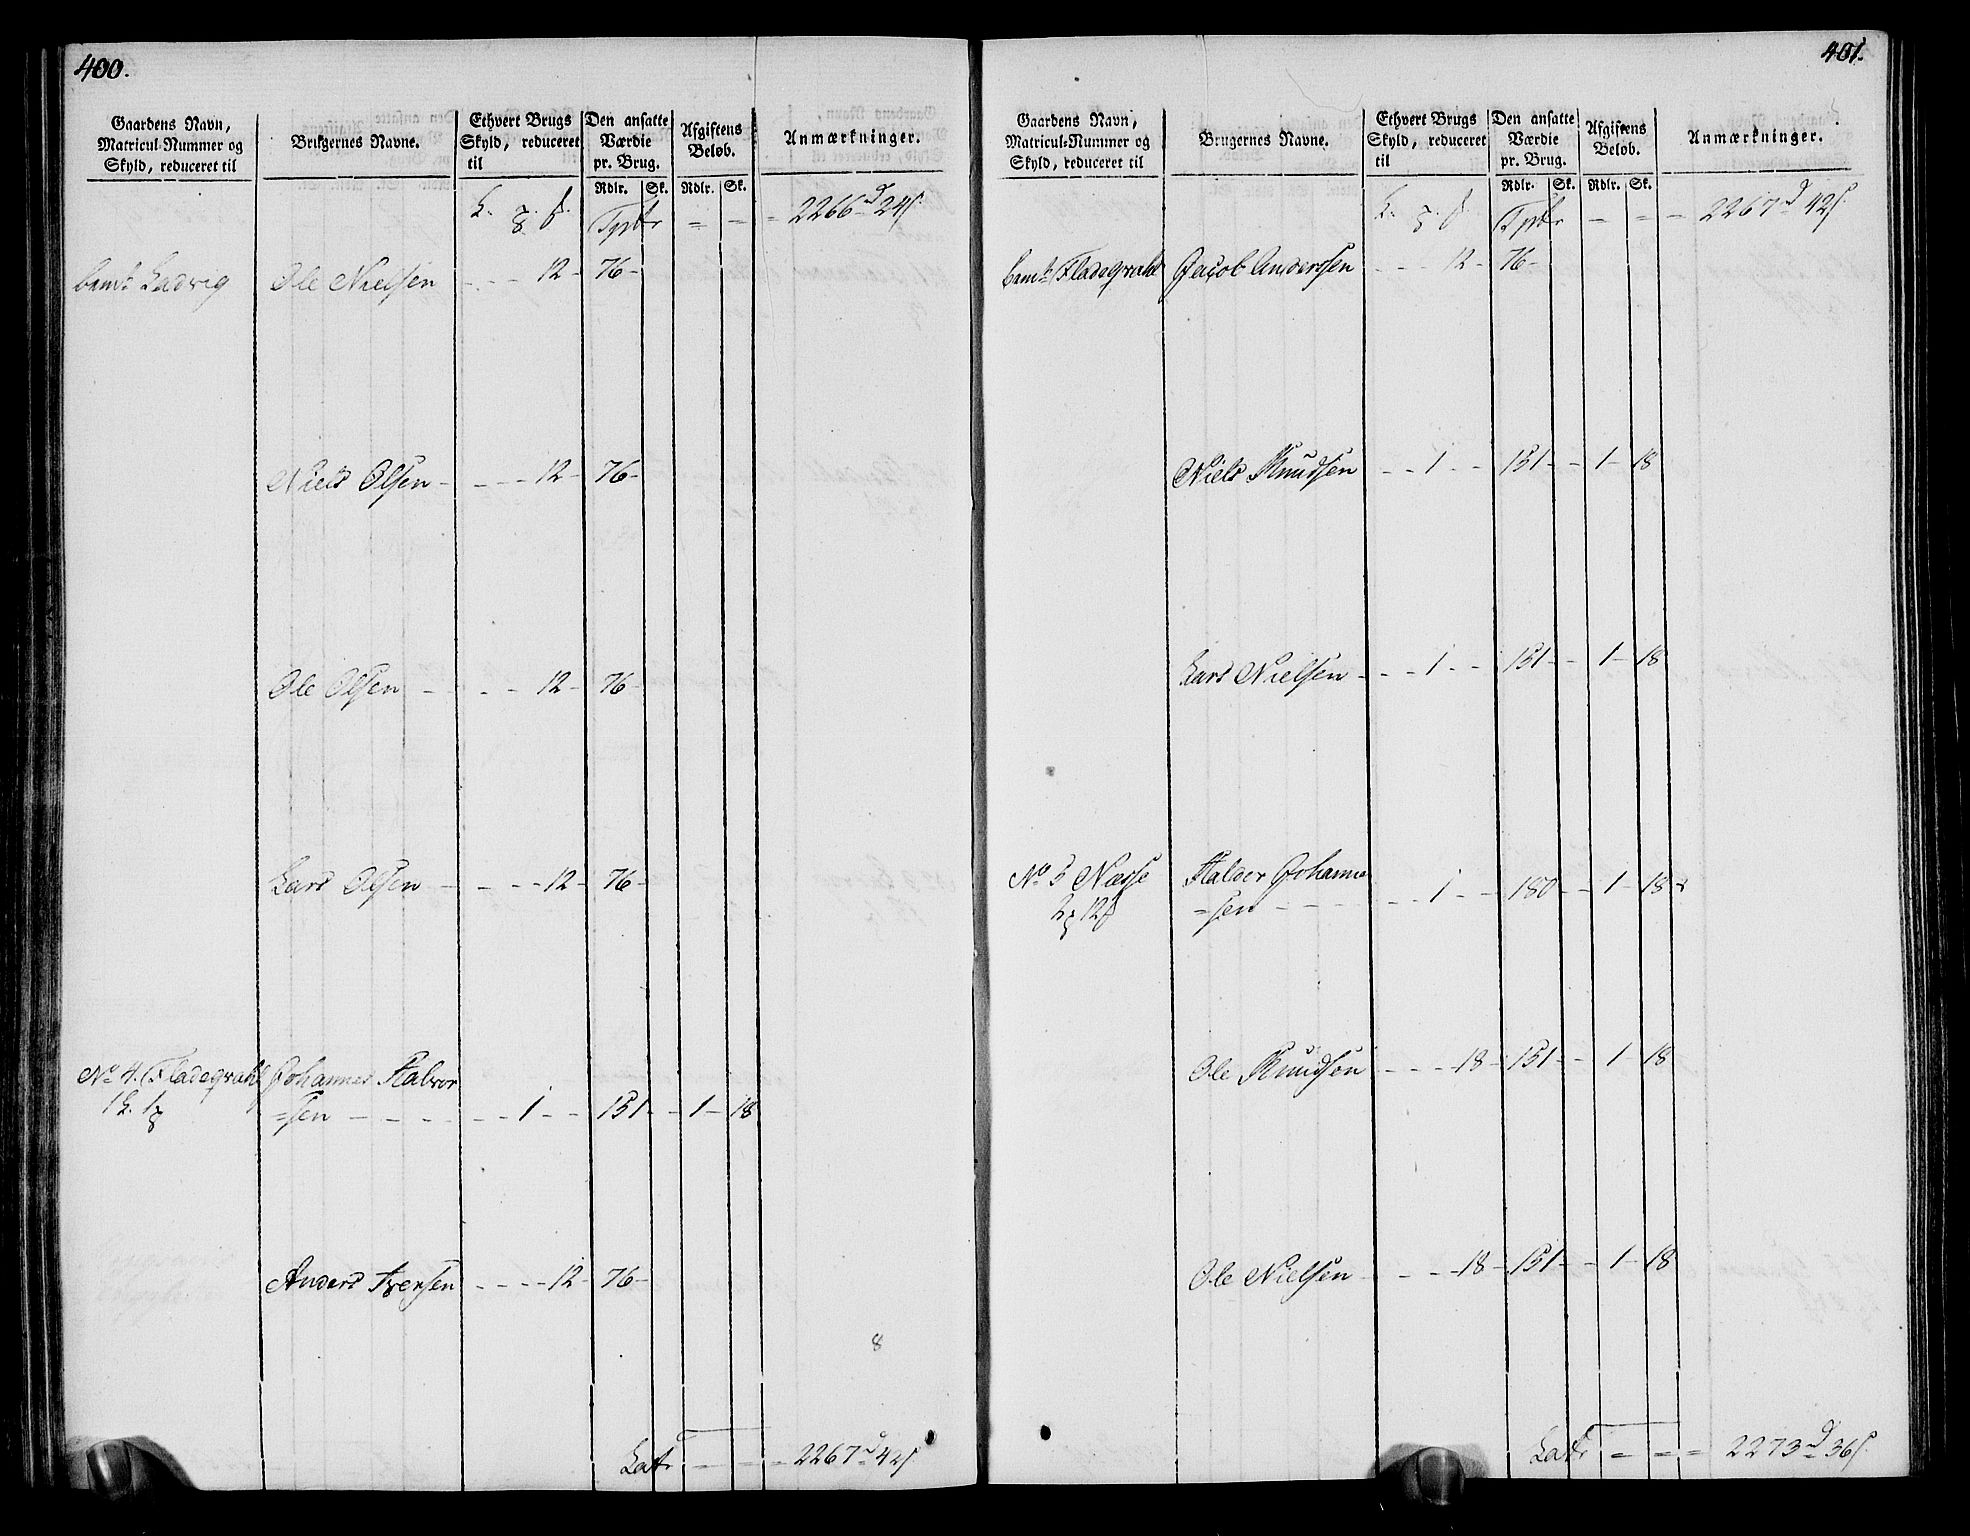 400.
Gaardens Navn,
Matricul-Nummer og
Skyld, reduceret til
Brugernes Navne.
Ethvert Brugs
Skyld, reduceret
til
Den ansatte
Værdie
pr. Brug.
Afgiftens
Beløb.
Anmærkninger.
Rdlr. Sk. Rdlr. Sk.
Tpbr = = = 2266 d 24 ß
Ladvig Ole Nielsen - - - 12 - 76 -
Niels Olsen - - - - 12 - 76 -
Ole Olsen - - - - 12 - 76 -
Lars Olsen - - - - 12 - 76 -
No 4. Fladeqval Johannes Halvor
=sen - - - - - - 1 - - 151 - - 1 - 18
Anders Iversen - - - - 12 - 76 -
8
Latr - - - 2267 d 42 ß
401.
Gaardens Navn,
Matricul-Nummer og
Skyld, reduceret til
Brugernes Navne.
Ethvert Brugs
Skyld, reduceret
til
Den ansatte
Værdie
pr. Brug.
Afgiftens
Beløb.
Anmærkninger.
Rdlr. Sk. Rdlr. Sk.
Tpbr = = = 2267 d 42 ß
Fladeqval Jacob Anderssen - - - 12 - 76 -
Niels Knudsen - - - 1 - - 151 - - 1 - 18
Lars Nielsen - - - - 1 - - 151 - - 1 - 18
No 5 Næsse Haldor Johanne
=sen - - - - - - 1 - - 150 - - 1 - 18
Ole Knudsen - - - - 18 - 151 - - 1 - 18
Ole Nielsen - - - - 18 - 151 - - 1 - 18
Latr = = = 2273 d 36 ß